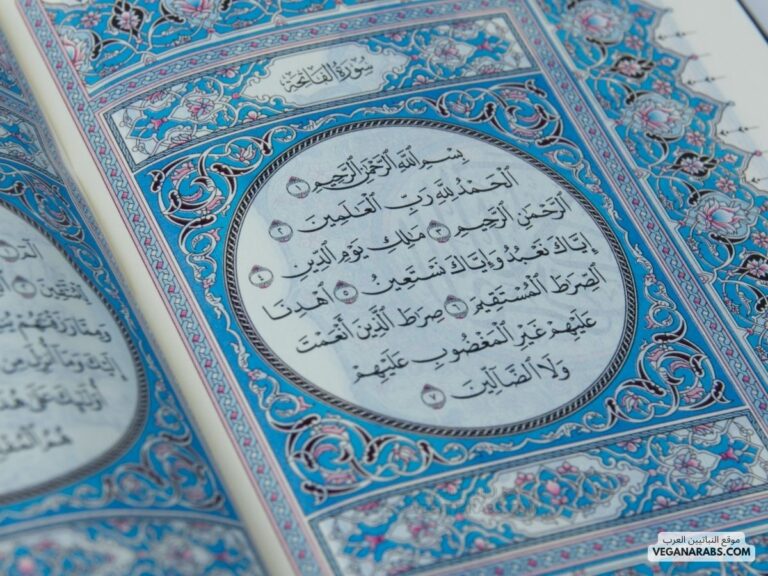 سُورَةُ الفَاتِحَةِ
بِسْمِ ٱللَّهِ ٱلرَّحْمَٰنِ ٱلرَّحِيمِ ١
ٱلْحَمْدُ لِلَّهِ رَبِّ ٱلْعَٰلَمِينَ ٢
ٱلرَّحْمَٰنِ ٱلرَّحِيمِ ٣ مَٰلِكِ يَوْمِ ٱلدِّينِ ٤
إِيَّاكَ نَعْبُدُ وَإِيَّاكَ نَسْتَعِينُ ٥ ٱهْدِنَا
ٱلصِّرَٰطَ ٱلْمُسْتَقِيمَ ٦ صِرَٰطَ ٱلَّذِينَ أَنْعَمْتَ
عَلَيْهِمْ غَيْرِ ٱلْمَغْضُوبِ عَلَيْهِمْ
وَلَا ٱلضَّآلِّينَ ٧
الٓمٓ
وَمِمَّا رَزَقْنَٰهُمْ
إِلَيْكَ وَمَآ أُنزِلَ مِن
أُو۟لَٰٓئِكَ عَلَىٰ
هُمُ
موقع النباتيين العرب
VEGANARABS.COM